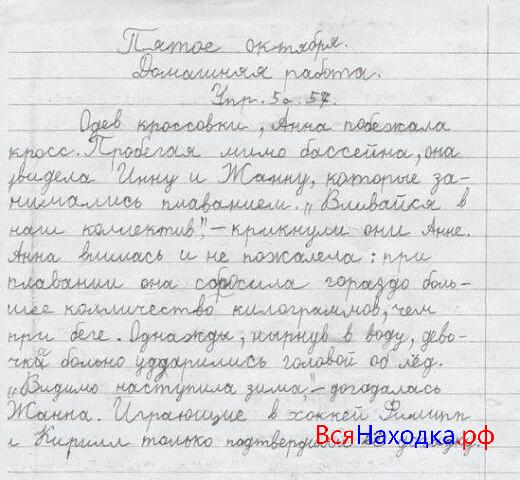 Пятое октября.
Домашняя работа.
Упр. 5а. 57.
Одев кроссовки, Анна побежала
кросс. Пробегая мимо бассейна, она
увидела Инну и Жанну, которые за-
нимались плаванием. „Вливайся в
наш коллектив", - крикнули они Анне.
Анна влилась и не пожалела: при
плавании она сбросила гораздо боль-
шее колличество килограммов, чем
при беге. Однажды, нырнув в воду, дево-
чки больно уддарились головой об лёд.
„Видимо наступила зима", - догадалась
Жанна. Играющие в хоккей Филипп
и Кирилл только подтвердили её догадку.
ВсяНаходка.рф